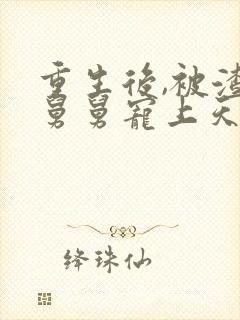 重生後,被渣
舅舅寵上天
绛珠仙